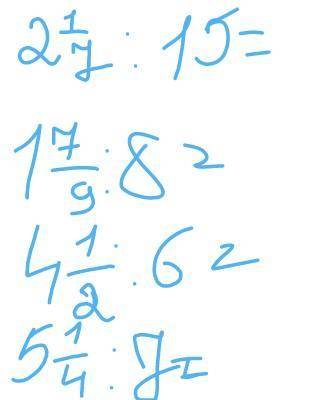 2 1/7 : 15 =
1 7/9 : 8 =
4 1/2 : 6 =
5 1/4 : 7 =